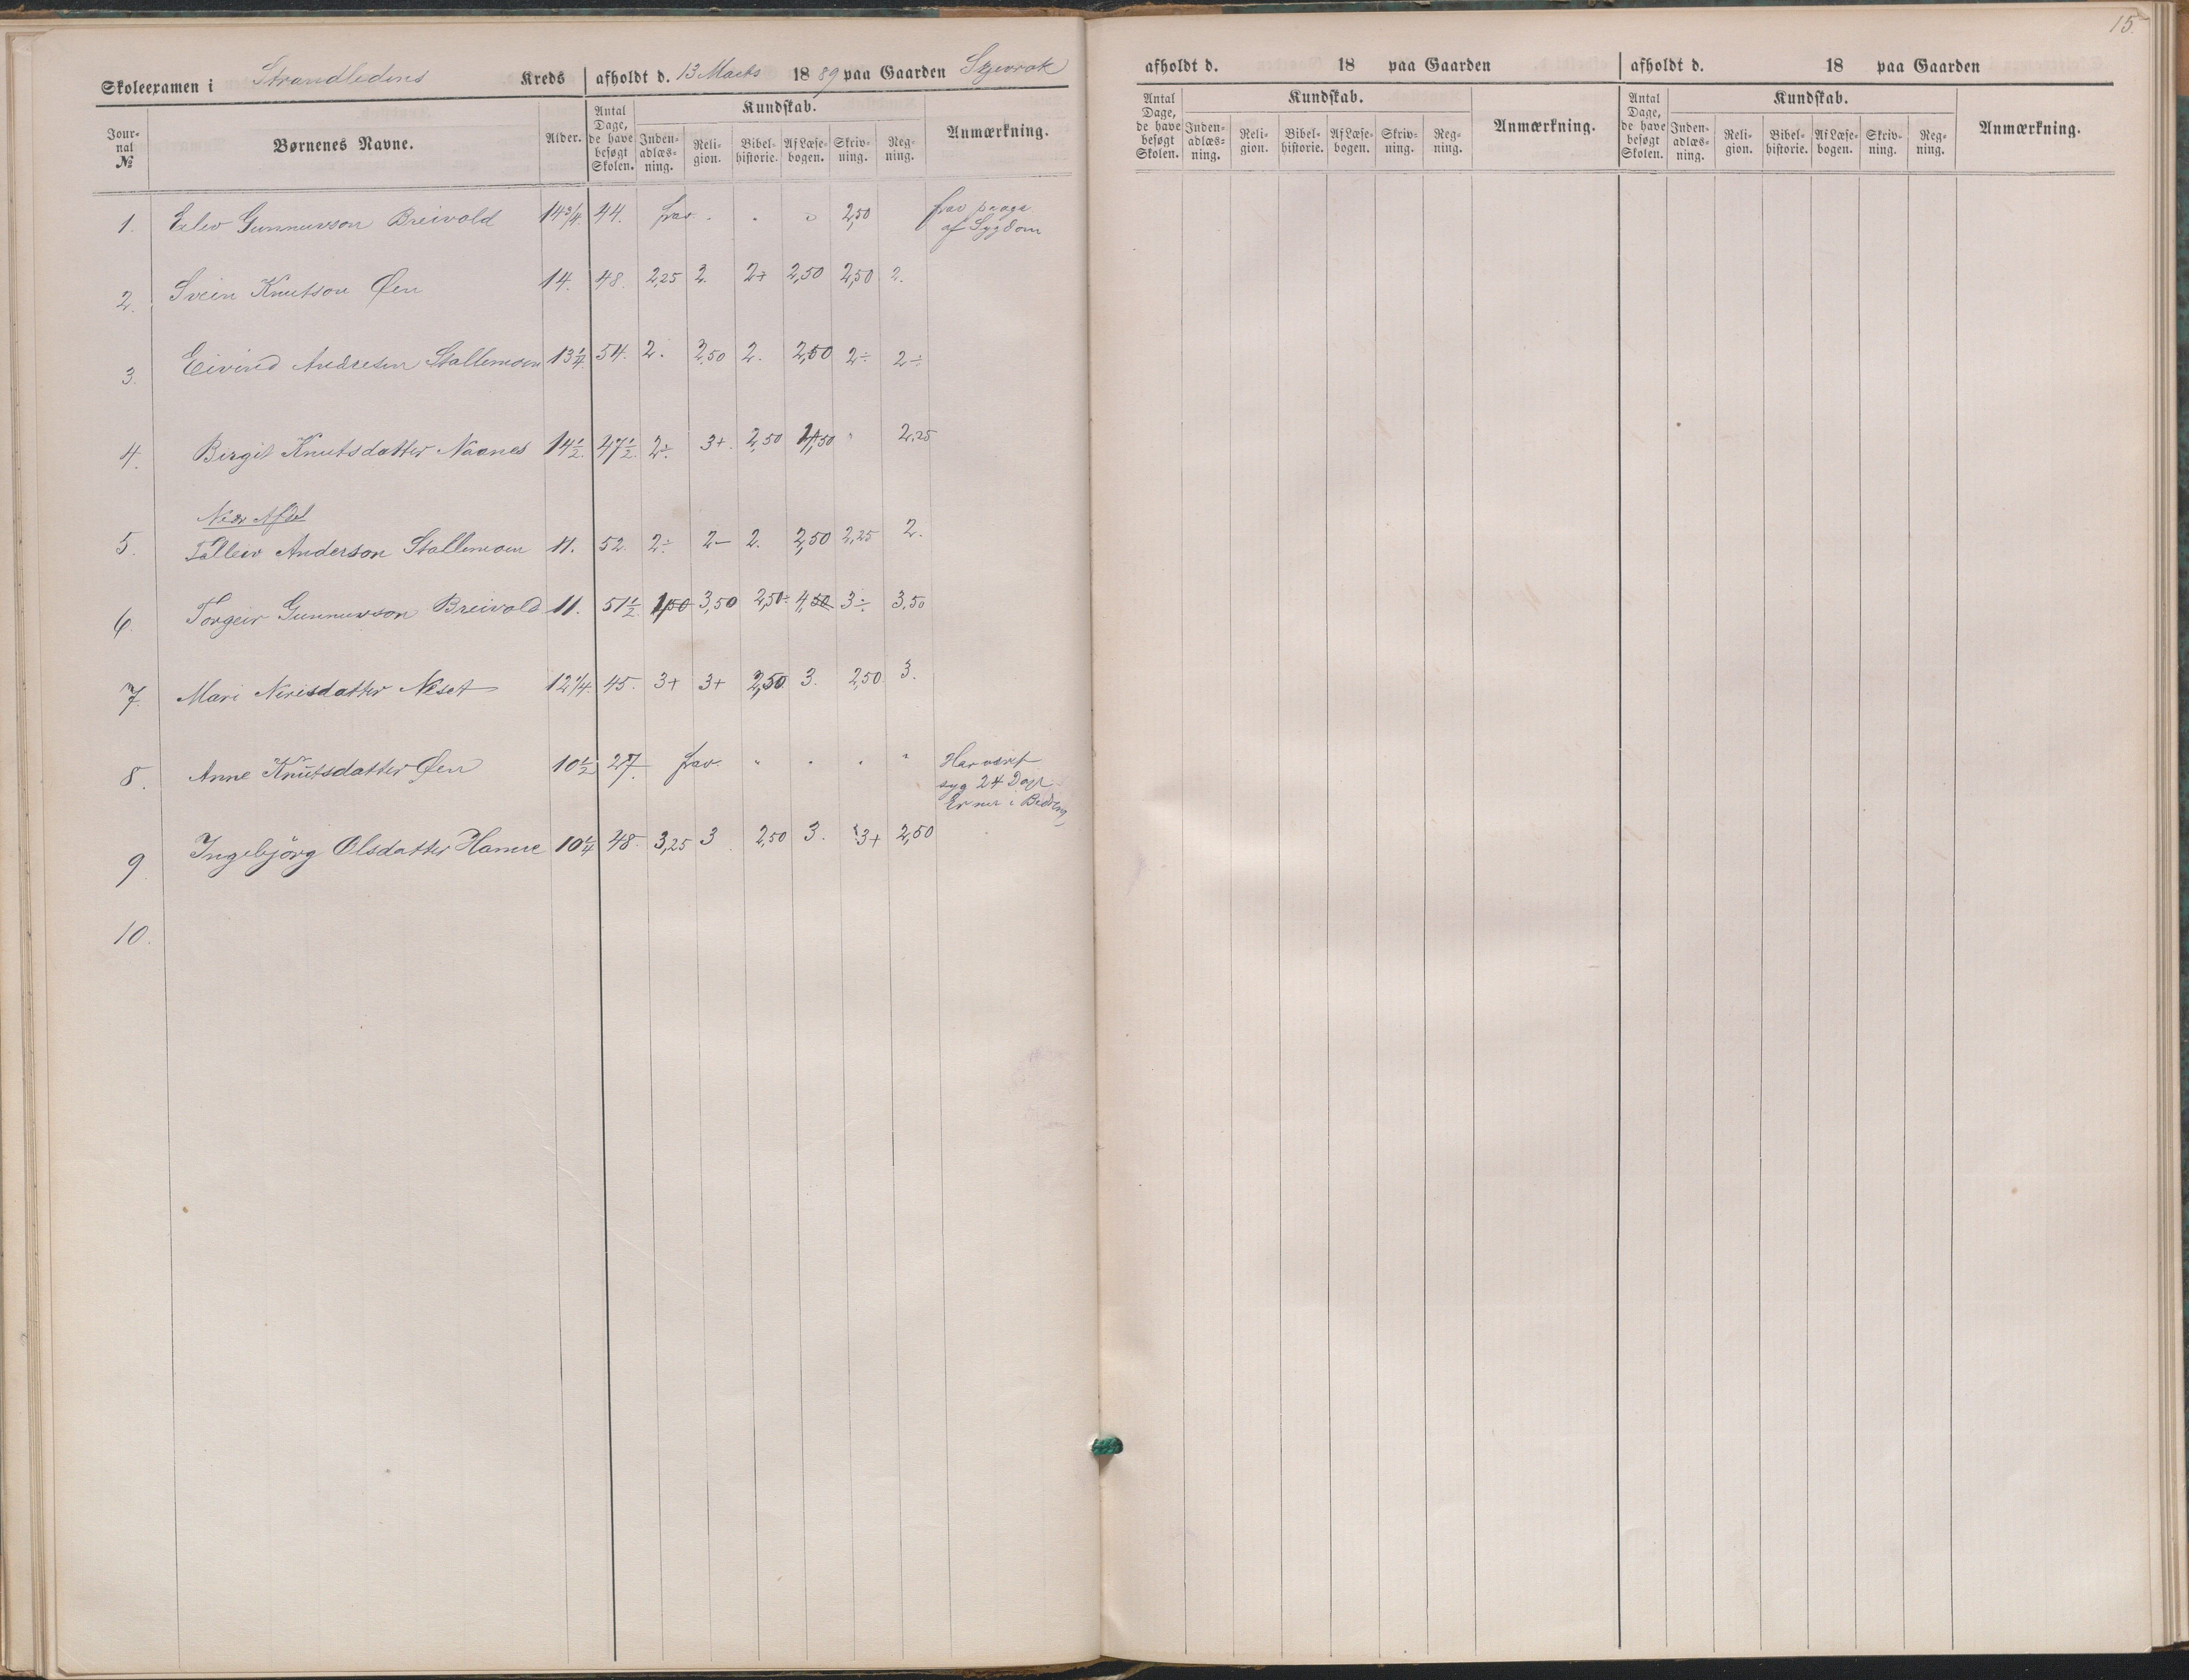 15.
Skoleexamen i Strandledens Kreds afholdt d. 13 Marts 1889 paa Gaarden
Jour-nal № Børnenes Navne. Alder. Antal Dage, de have besøgt Skolen. Kundskab. Inden-adlæs-ning. Reli-gion. Bibel-historie. Af Læse-bogen. Skriv-ning. Reg-ning. Anmærkning.
1. Gunnuvson Breivold 14 3/4. 44. frav. " " 2,50 frav paagr. af Sygdom
2. Svein Knutson Øen 14. 48. 2,25 2. 2+ 2,50 2,50 2.
3. Eivind Andresen Stallemoen 13 1/4. 54. 2. 2,50 2. 2,50 2÷ 2÷
4. Birgit Knutsdatter Naanes 14 1/2. 47 1/2. 2÷. 3+. 2,50 " 2,25
Nedr Afdel
5. Talleiv Anderson Stallemoen 11. 52. 2÷ 2- 2. 2,50 2,25 2.
6. Torgeir Gunnuvson Breivold 11. 51 1/2. 3,50 2,50÷ 3÷ 3,50
7. Mari Nirisdatter Neset 12 1/4. 45. 3+ 3+ 2,50. 3. 2,50. 3.
8. Anne Knutsdatter Øen 10 1/2 27. frav. " " " "
syg 24 Dage
9. Ingebjörg Olsdatter Hamre 10 1/4 48 3,25 3. 2,50 3. 3+ 2,50
10.
afholdt d. 18 paa Gaarden
Antal Dage, de have besøgt Skolen. Kundskab. Inden-adlæs-ning. Reli-gion. Bibel-historie. Af Læse-bogen. Skriv-ning. Reg-ning. Anmærkning.
afholdt d. 18 paa Gaarden
Antal Dage, de have besøgt Skolen. Kundskab. Inden-adlæs-ning. Reli-gion. Bibel-historie. Af Læse-bogen. Skriv-ning. Reg-ning. Anmærkning.